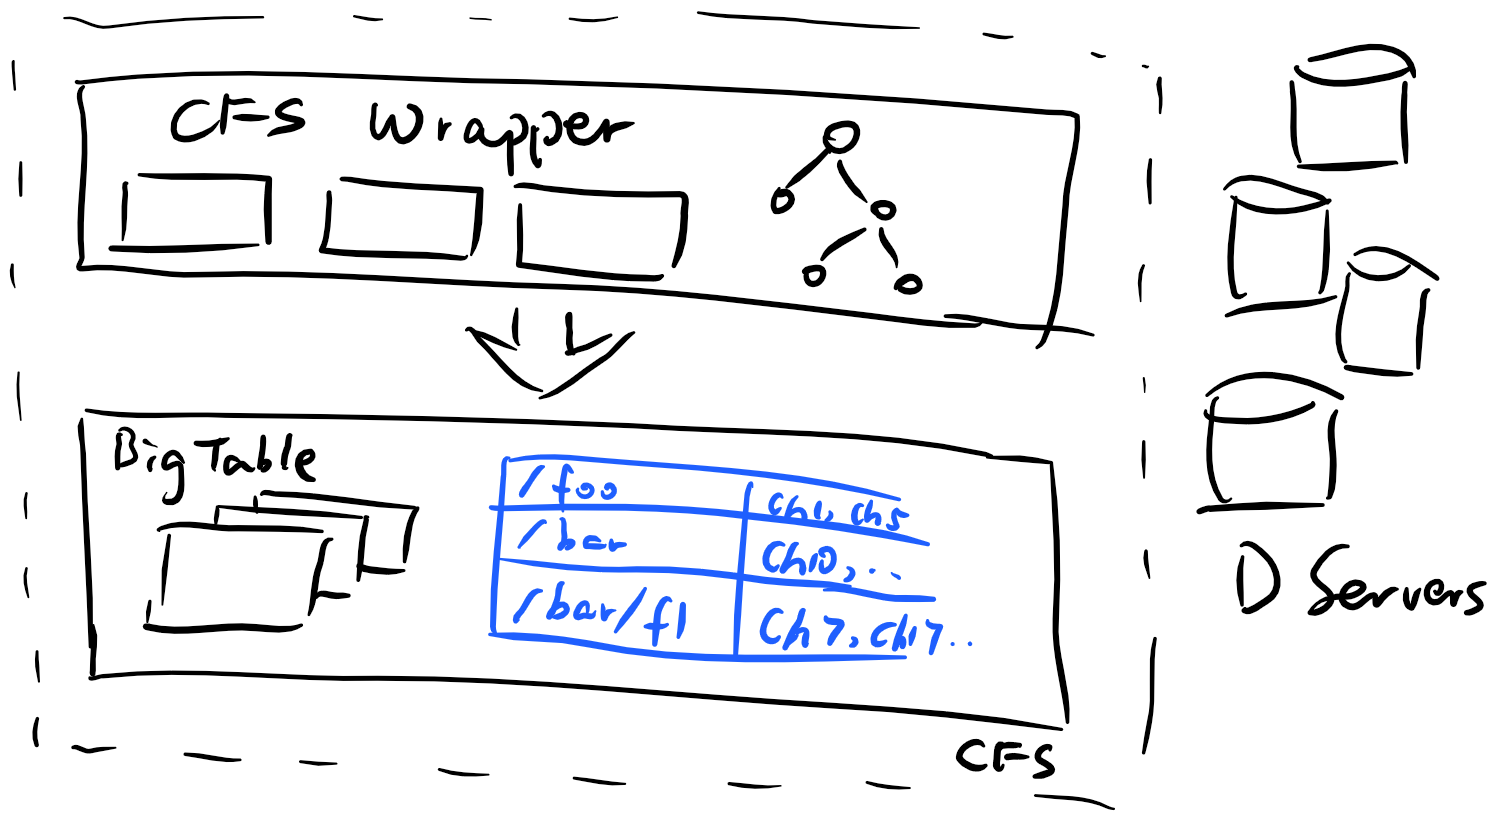 CFS Wrapper
BigTable
/foo ch1, ch5
/bar Ch10, ..
/bar/f1 Ch7, ch17..
D Servers
CFS